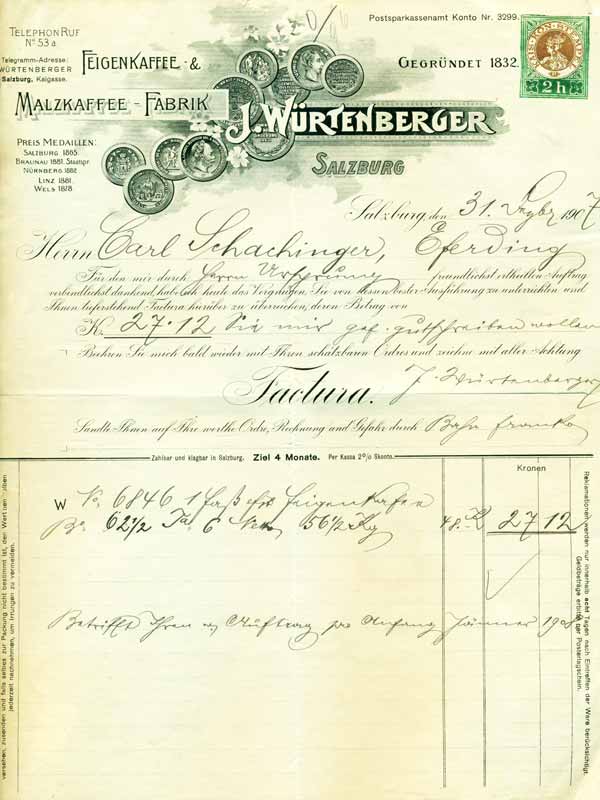 TELEPHON RUF
No 53a
Postsparkassenamt Konto Nr. 3299.
Telegramm-Adresse:
WÜRTENBERGER
Salzburg, Kaigasse.
FEIGENKAFFEE- &
GEGRÜNDET 1832.
2h
MALZKAFFEE-FABRIK
J. WÜRTENBERGER
SALZBURG
PREIS MEDAILLEN:
SALZBURG 1865.
BRAUNAU 1881. Staatspr.
NÜRNBERG 1882.
LINZ 1881.
WELS 1878.
Salzburg, den 31. Dezbr 1907
Herrn Carl Schachinger, Eferding
Für den mir durch Herrn Ursprung freundlichst ertheilten Auftrag
verbindlichst dankend, habe ich heute das Vergnügen Sie von dessen bester Ausführung zu unterrichten und
Ihnen tieferstehend Factura hierüber zu überreichen, deren Betrag von
K. 27·12 Sie mir gef. gutschreiben wollen
Beehren Sie mich bald wieder mit Ihren schätzbaren Ordres und zeichne mit aller Achtung
J. Würtenberger
Factura.
Sandte Ihnen auf Ihre werthe Ordre, Rechnung und Gefahr durch Bahn franko
Zahlbar und klagbar in Salzburg. Ziel 4 Monate. Per Kassa 2% Skonto.
Kronen
W No. 6846 1 Faß Feigenkafee
Bo. 62 1/2 Ta. 6 Netto 56 1/2 Kg 48.- K 27 12
Betrifft Ihren Auftrag pro Anfang Jänner 1908
versehen, zusenden und falls selbes zur Packung nicht bestimmt ist, den Wert
jederzeit nachnehmen, um Irrungen zu vermeiden.
Reklamationen werden nur innerhalb acht Tagen nach Eintreffen der Ware berücksichtigt.
Geldbeträge erbitte per Posterlagschein.